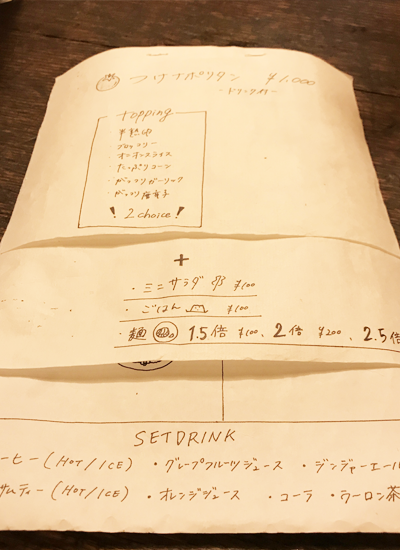 つけナポリタン ¥1,000
・ドリンク付
topping
・半熟卵
・ブロッコリー
・オニオンスライス
・たっぷりコーン
・がっつりガーリック
・がっつり唐辛子
! 2 choice !
+
・ミニサラダ ¥100
・ごはん ¥100
・麺 1.5倍 ¥100、2倍 ¥200、2.5倍
SETDRINK
ーヒー(HOT/ICE) ・グレープフルーツジュース ・ジンジャーエール
サムティー(HOT/ICE) ・オレンジジュース ・コーラ ・ウーロン茶